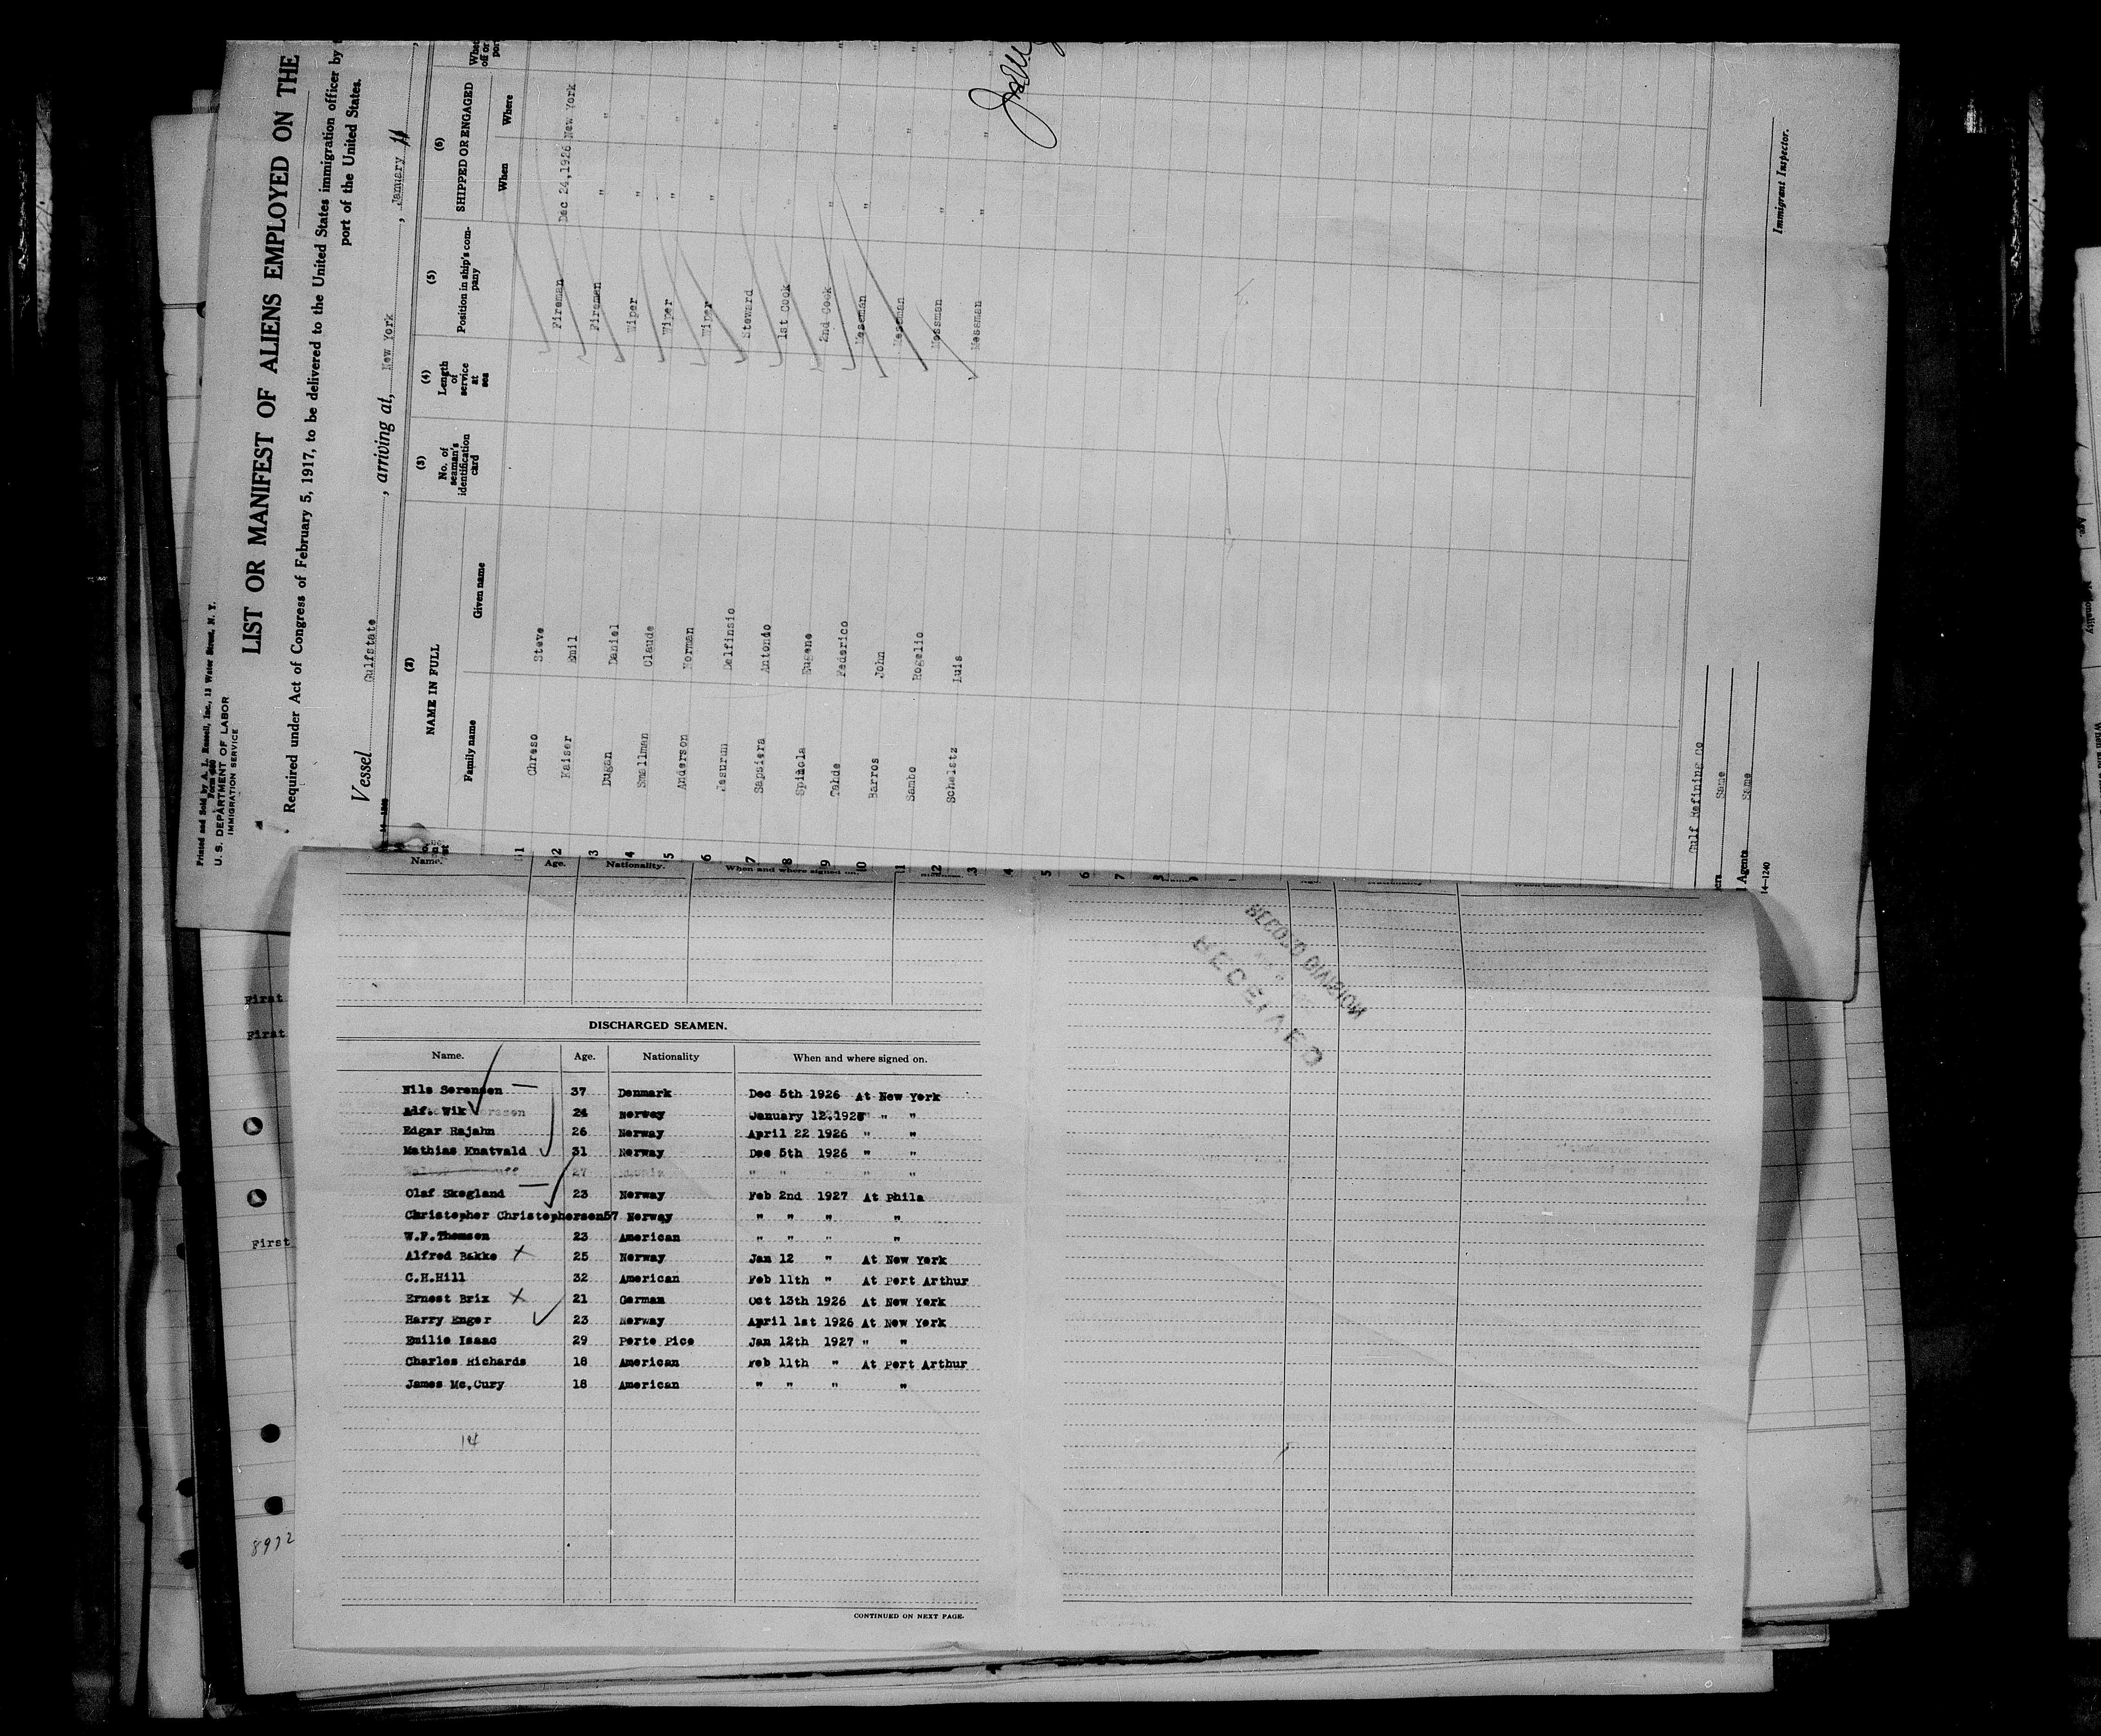 Printed and Sold by A. L. Russell, Inc., 13 Water Street, N. Y.
U. S. DEPARTMENT OF LABOR
IMMIGRATION SERVICE
LIST OR MANIFEST OF ALIENS EMPLOYED ON THE
Required under Act of Congress of February 5, 1917, to be delivered to the United States immigration officer by
port of the United States.
Vessel Gulfstate, arriving at, New York, January 11,
(2) (3) (4) (5) (6)
NAME IN FULL No. of seaman's identification card Length of service at sea Position in ship's company SHIPPED OR ENGAGED
Family name Given name When Where
1 Chreso Steve Fireman Dec 24,1926 New York
2 Kaiser Emil Fireman " "
3 Dugan Daniel Wiper " "
4 Smallman Claude Wiper " "
5 Anderson Norman Wiper " "
6 Jesurun Delfinsio Steward
7 Sapsiera Antonio 1st Cook " "
8 Spinola Eugene 2nd Cook " "
9 Tahde Federico Messman "
10 Barros John Messman "
11 Sambo Rogelio Messman " "
12 Schelstz Luis Messman " "
3
4
5
6
7
8
9
Gulf Refining Co
Same
Agents Same
14—1240
Immigrant Inspector.
Name. Age. Nationality. When and where signed on.
First
First
First
8972
RECORD DIVISION
RECEIVED
DISCHARGED SEAMEN.
Name. Age. Nationality When and where signed on.
Nils Sorensen 37 Denmark Dec 5th 1926 At New York
Adf. Wik 24 Norway January 12.1926 " "
Edgar Rajahn 26 Norway April 22 1926 " "
Mathias Knatvald 31 Norway Dec 5th 1926 " "
27 " " " " "
Olaf Skogland 23 Norway Feb 2nd 1927 At Phila
Christopher Christophersen 57 Norway " " " "
W.F.Thomsen 23 American " " " "
Alfred Bakke 25 Norway Jan 12 " At New York
C.H.Hill 32 American Feb 11th " At Port Arthur
Ernest Brix 21 German Oct 13th 1926 At New York
Harry Enger 23 Norway April 1st 1926 At New York
Emilie Isaac 29 Porto Rico Jan 12th 1927 " "
Charles Richards 18 American Feb 11th " At Port Arthur
James Mc.Cury 18 American " " " "
14
CONTINUED ON NEXT PAGE.